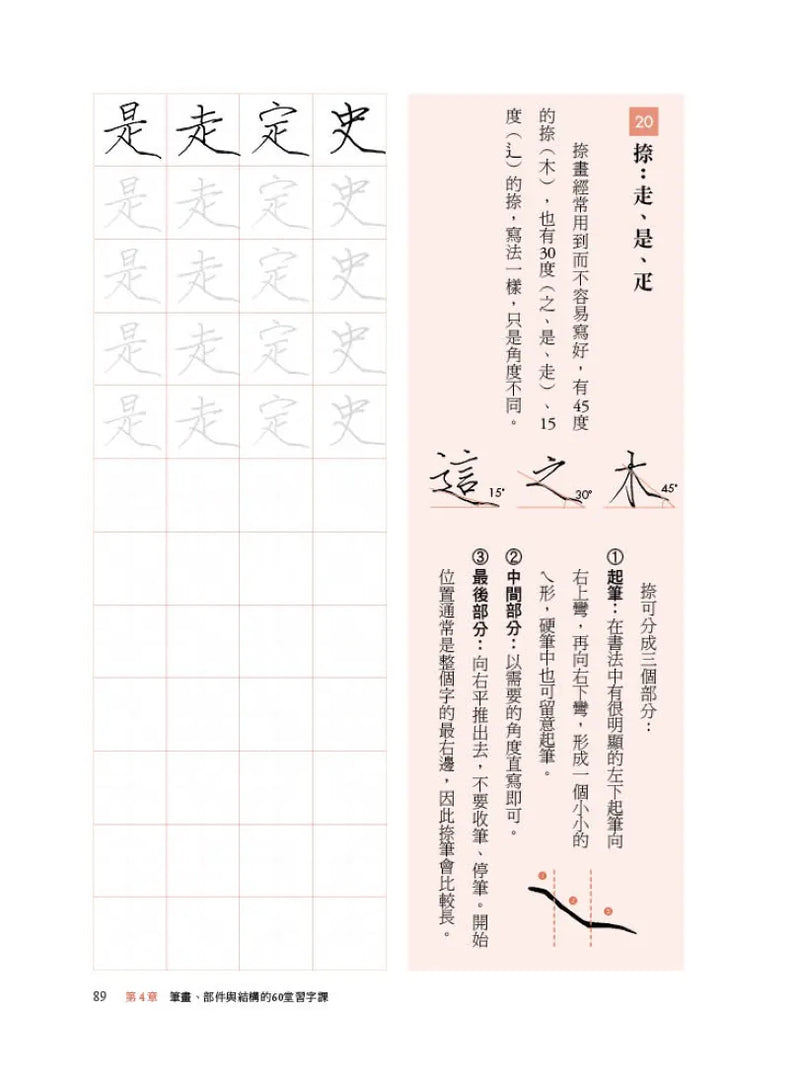 20 捺：走、是、疋
捺畫經常用到而不容易寫好，有45度
的捺（木），也有30度（之、是、走）、15
度（辶）的捺，寫法一樣，只是角度不同。
木 45°
之 30°
這 15°
捺可分成三個部分：
① 起筆：在書法中有很明顯的左下起筆向
右上彎，再向右下彎，形成一個小小的
ㄟ形，硬筆中也可留意起筆。
② 中間部分：以需要的角度直寫即可。
③ 最後部分：向右平推出去，不要收筆、停筆。開始
位置通常是整個字的最右邊，因此捺筆會比較長。
1
2
3
史史史史史
定定定定定
走走走走走
是是是是是
89 第4章 筆畫、部件與結構的60堂習字課